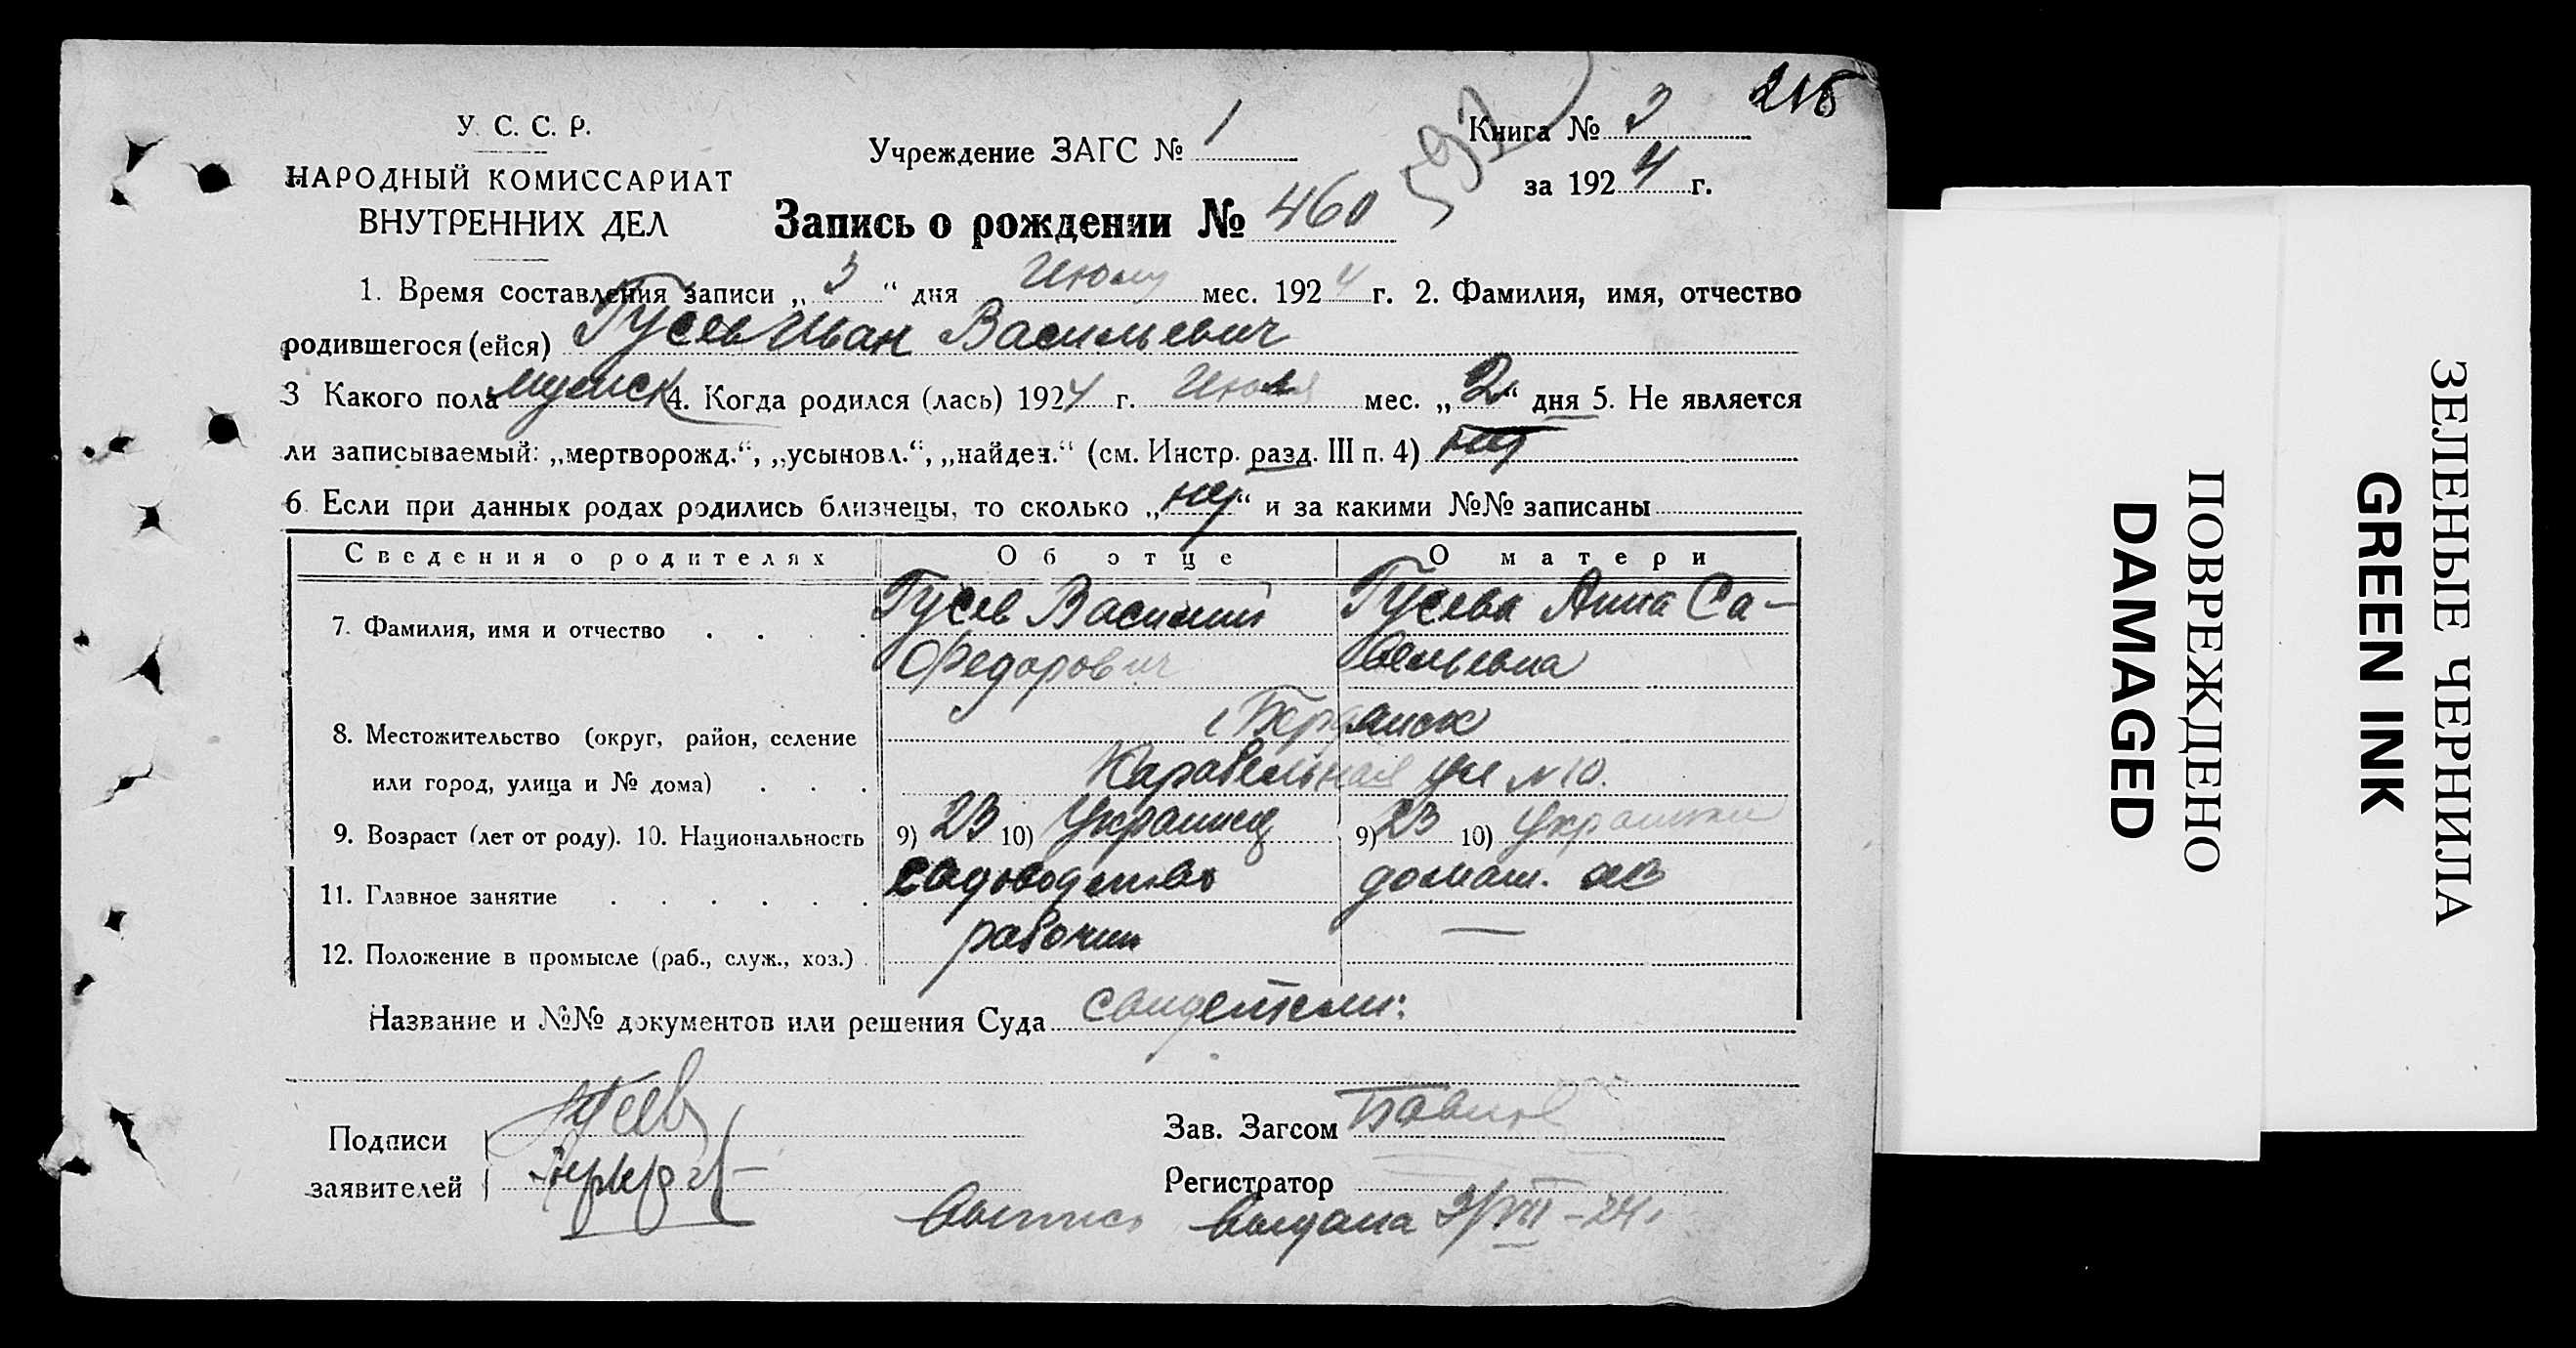 216
У. С. С. Р.
НАРОДНЫЙ КОМИССАРИАТ
ВНУТРЕННИХ ДЕЛ
Учреждение ЗАГС № 1
Книга № 3
за 1924 г.
592
Запись о рождении № 460
1. Время составления записи „ 3 “ дня Июля мес. 1924 г. 2. Фамилия, имя, отчество
родившегося (ейся) Гусев Иван Васильевич
3 Какого пола мужск 4. Когда родился (лась) 1924 г. Июля мес. „ 2 “ дня 5. Не является
ли записываемый: „мертворожд.“, „усыновл.“, „найден.“ (см. Инстр. разд. III п. 4) нет
6. Если при данных родах родились близнецы, то сколько „ нет “ и за какими №№ записаны
Сведения о родителях Об отце О матери
7. Фамилия, имя и отчество Гусев Василий Гусева Анна Са-
Федорович вельевна
8. Местожительство (округ, район, селение Бердянск
или город, улица и № дома) Карабельная ул N 10.
9. Возраст (лет от роду). 10. Национальность 9) 23 10) Украинец 9) 23 10) Украинка
11. Главное занятие садоводство домаш. хоз
12. Положение в промысле (раб., служ., хоз.) рабочий —
Название и №№ документов или решения Суда свидетели:
Подписи Гусев
заявителей
Зав. Загсом
Регистратор
Выпись выдана 3/VII-24г
ЗЕЛЕНЫЕ ЧЕРНИЛА
GREEN INK
ПОВРЕЖДЕНО
DAMAGED